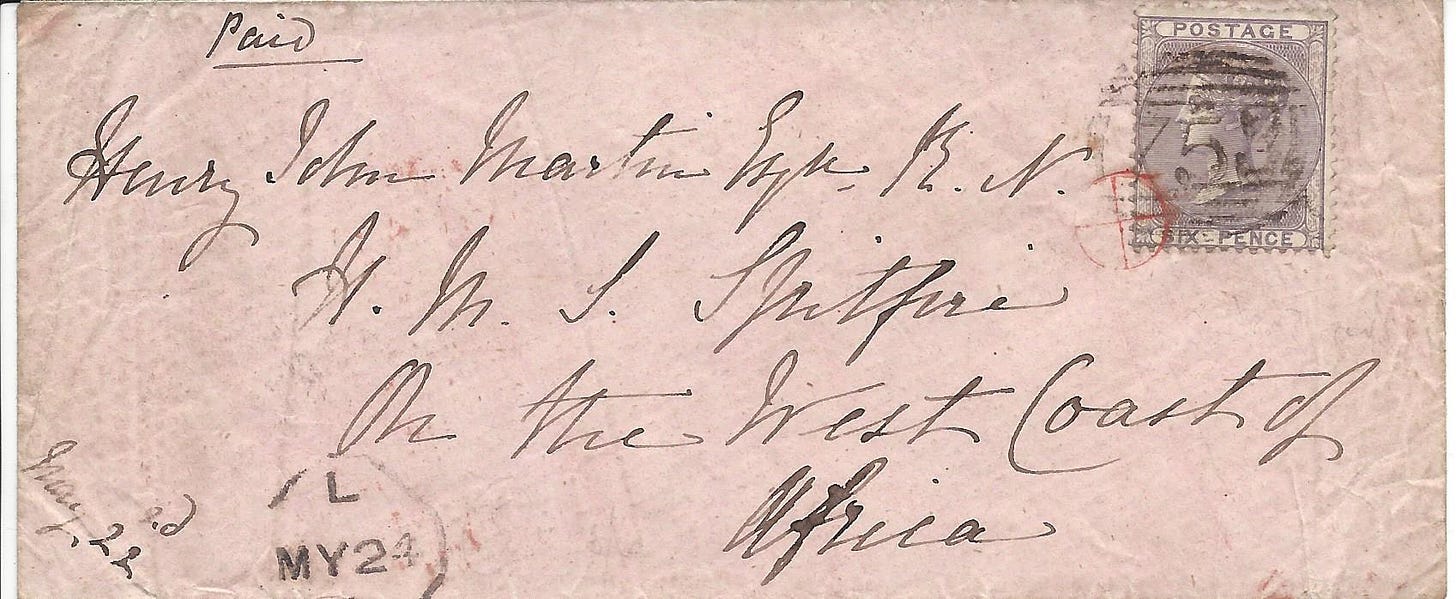 Paid
POSTAGE
Henry John Martin Esqr. R. N.
SIX-PENCE
H. M. S. Spitfire
On the West Coast of
Africa
May 22nd
L
MY24